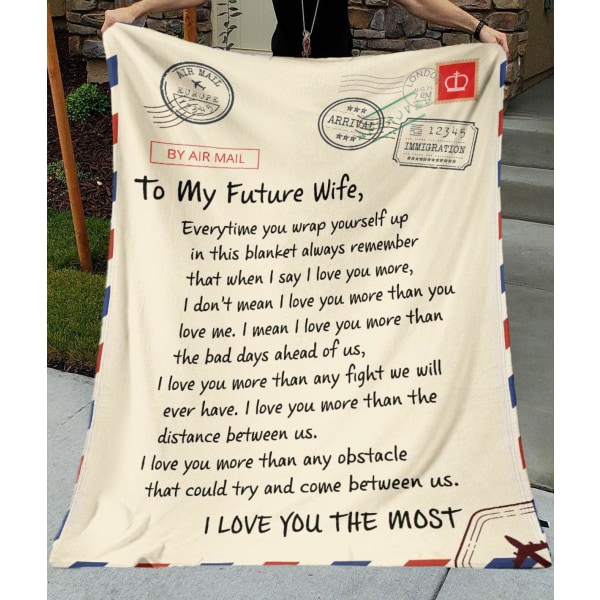 AIR MAIL
EUROPE
12345
LONDON
ARRIVAL
12345
IMMIGRATION
BY AIR MAIL
To My Future Wife,
Everytime you wrap yourself up
in this blanket always remember
that when I say I love you more,
I don't mean I love you more than you
love me. I mean I love you more than
the bad days ahead of us,
I love you more than any fight we will
ever have. I love you more than the
distance between us.
I love you more than any obstacle
that could try and come between us.
I LOVE YOU THE MOST